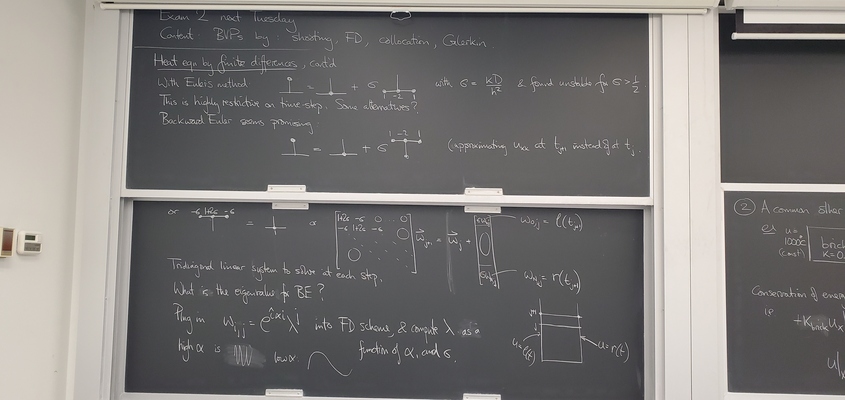 Exam 2 next Tuesday
Content: BVPs by: shooting, FD, collocation, Galerkin.
Heat eqn by finite differences, cont'd
With Euler's method = + σ 1 -2 1 with σ = kD/h² & found unstable for σ > 1/2.
This is highly restrictive on time-step. Some alternatives?
Backward Euler seems promising
= + σ 1 -2 1 (approximating u_xx at t_j+1 instead of at t_j.
or -σ 1+2σ -σ = or [1+2σ -σ 0 0
-σ 1+2σ -σ
0] w_j+1 = w_j + [σw_0j 0 σw_nj] w_0j = l(t_j+1)
w_nj = r(t_j+1)
Tridiagonal linear system to solve at each step.
What is the eigenvalue for BE?
Plug in w_ij = e^iαi λ^j into FD scheme, & compute λ as a
function of α, and σ.
high α is low α:
u=l(t) u=r(t)
② A common other
ex u=
1000c
(const)
brick
K=0.
Conservation of energy
ie +K_brick u_x
u|x